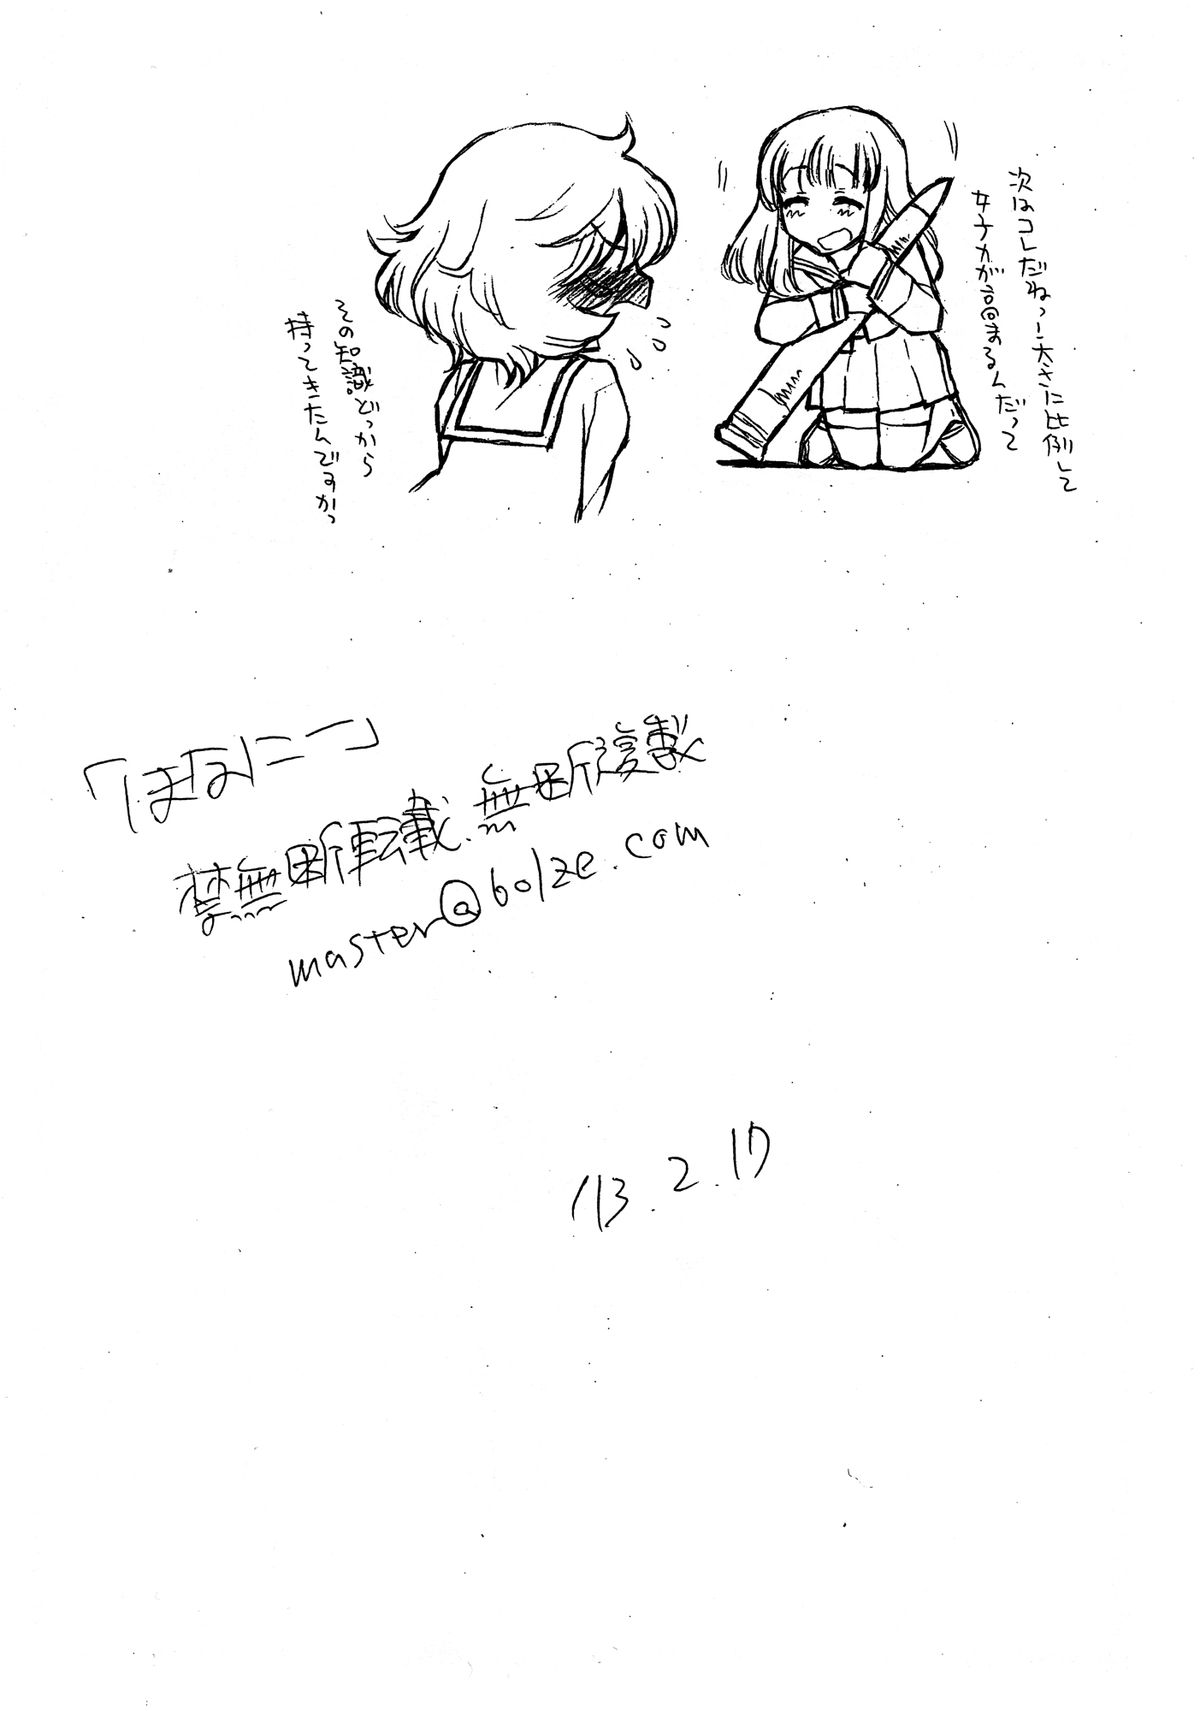 次はコレだねっ！太さに比例して
女子力が高まるんだって
その知識どっから
持ってきたんですかっ
「ほなにー」
禁無断転載.無断複製
master@bolze.com
'13.2.17